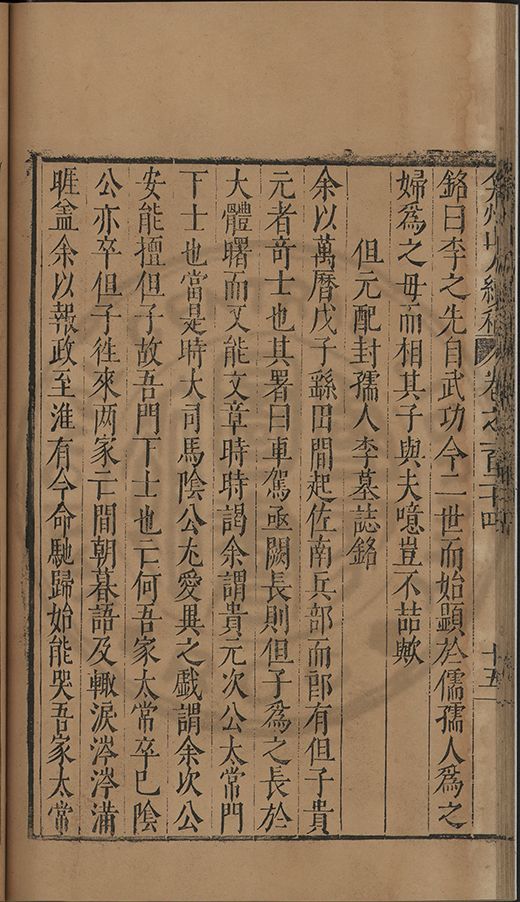 弇州山人續稿 卷之一百二十四 十五
銘曰李之先自武功今二世而始顯於儒孺人爲之
婦爲之母而相其子與夫噫豈不喆歟
但元配封孺人李墓誌銘
余以萬曆戊子繇田間起佐南兵部而郎有但子貴
元者竒士也其署曰車駕亟闕長則但子爲之長於
大體曙而又能文章時時謁余謂貴元次公太常門
下士也當是時大司馬陰公尤愛異之戲謂余次公
安能擅但子故吾門下士也亡何吾家太常卒已陰
公亦卒但子徃來两家亡間朝暮語及輙淚涔涔滿
睚盖余以報政至淮有今命馳歸始能哭吾家太常